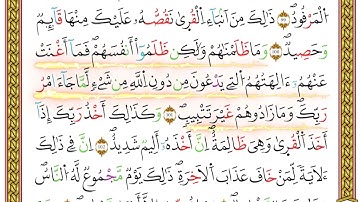 الْمَرْفُودُ ۝٩٩ ذَٰلِكَ مِنْ أَنۢبَآءِ الْقُرَىٰ نَقُصُّهُۥ عَلَيْكَ ۖ مِنْهَا قَآئِمٌ
وَحَصِيدٌ ۝١٠٠ وَمَا ظَلَمْنَٰهُمْ وَلَٰكِن ظَلَمُوٓا۟ أَنفُسَهُمْ ۖ فَمَآ أَغْنَتْ
عَنْهُمْ ءَالِهَتُهُمُ الَّتِى يَدْعُونَ مِن دُونِ اللَّهِ مِن شَىْءٍ لَّمَّا جَآءَ أَمْرُ
رَبِّكَ ۖ وَمَا زَادُوهُمْ غَيْرَ تَتْبِيبٍ ۝١٠١ وَكَذَٰلِكَ أَخْذُ رَبِّكَ إِذَآ
أَخَذَ الْقُرَىٰ وَهِىَ ظَٰلِمَةٌ ۚ إِنَّ أَخْذَهُۥٓ أَلِيمٌ شَدِيدٌ ۝١٠٢ إِنَّ فِى ذَٰلِكَ
لَءَايَةً لِّمَنْ خَافَ عَذَابَ الْءَاخِرَةِ ۚ ذَٰلِكَ يَوْمٌ مَّجْمُوعٌ لَّهُ النَّاسُ